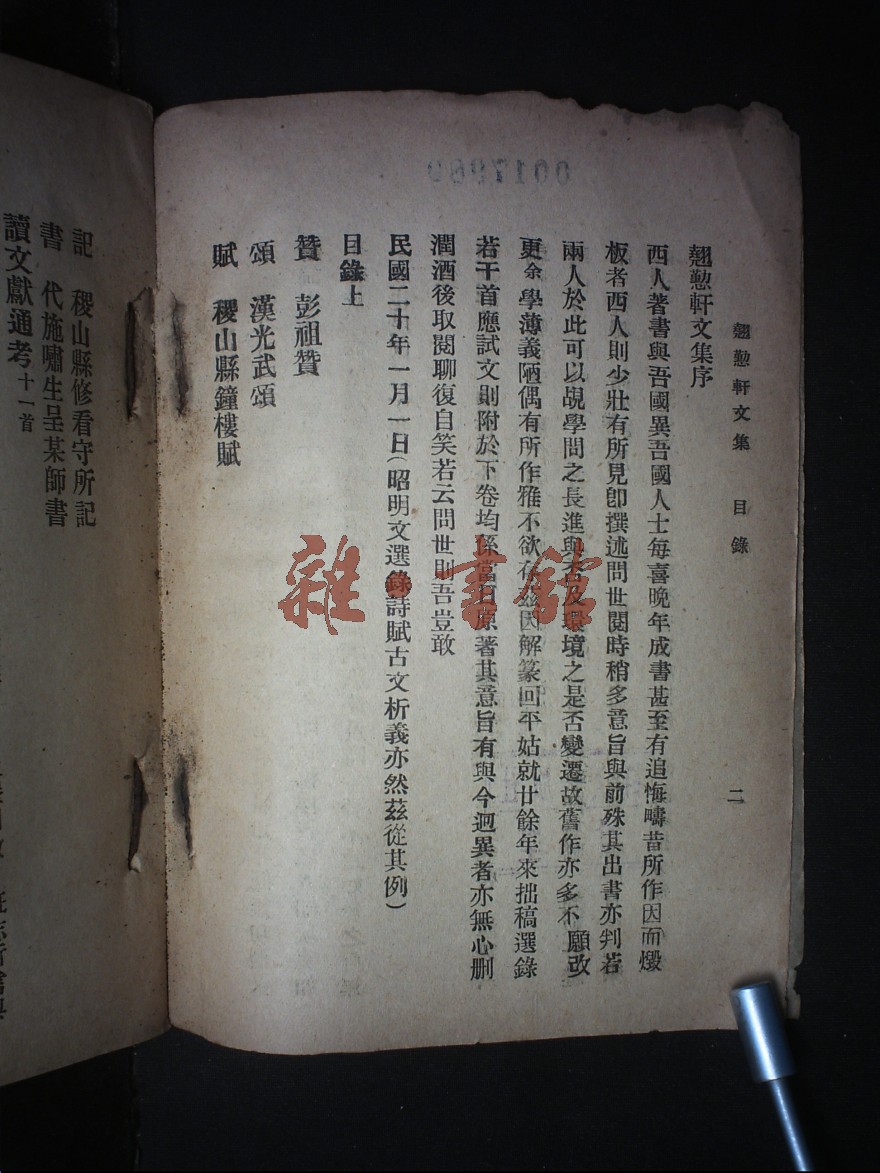 翹懃軒文集 目錄 二
翹懃軒文集序
西人著書與吾國異吾國人士每喜晚年成書甚至有追悔疇昔所作因而燬
板者西人則少壯有所見卽撰述問世閱時稍多意旨與前殊其出書亦判若
兩人於此可以覘學問之長進與否及環境之是否變遷故舊作亦多不願改
更余學薄義陋偶有所作雅不欲存茲因解篆回平姑就廿餘年來拙稿選錄
若干首應試文則附於下卷均係當日原著其意旨有與今迥異者亦無心刪
潤酒後取閱聊復自笑若云問世則吾豈敢
民國二十年一月一日(昭明文選錄詩賦古文析義亦然茲從其例)
目錄上
贊 彭祖贊
頌 漢光武頌
賦 稷山縣鐘樓賦
記 稷山縣修看守所記
書 代施嘯生呈某師書
讀文獻通考十一首
0017969
雜·書館